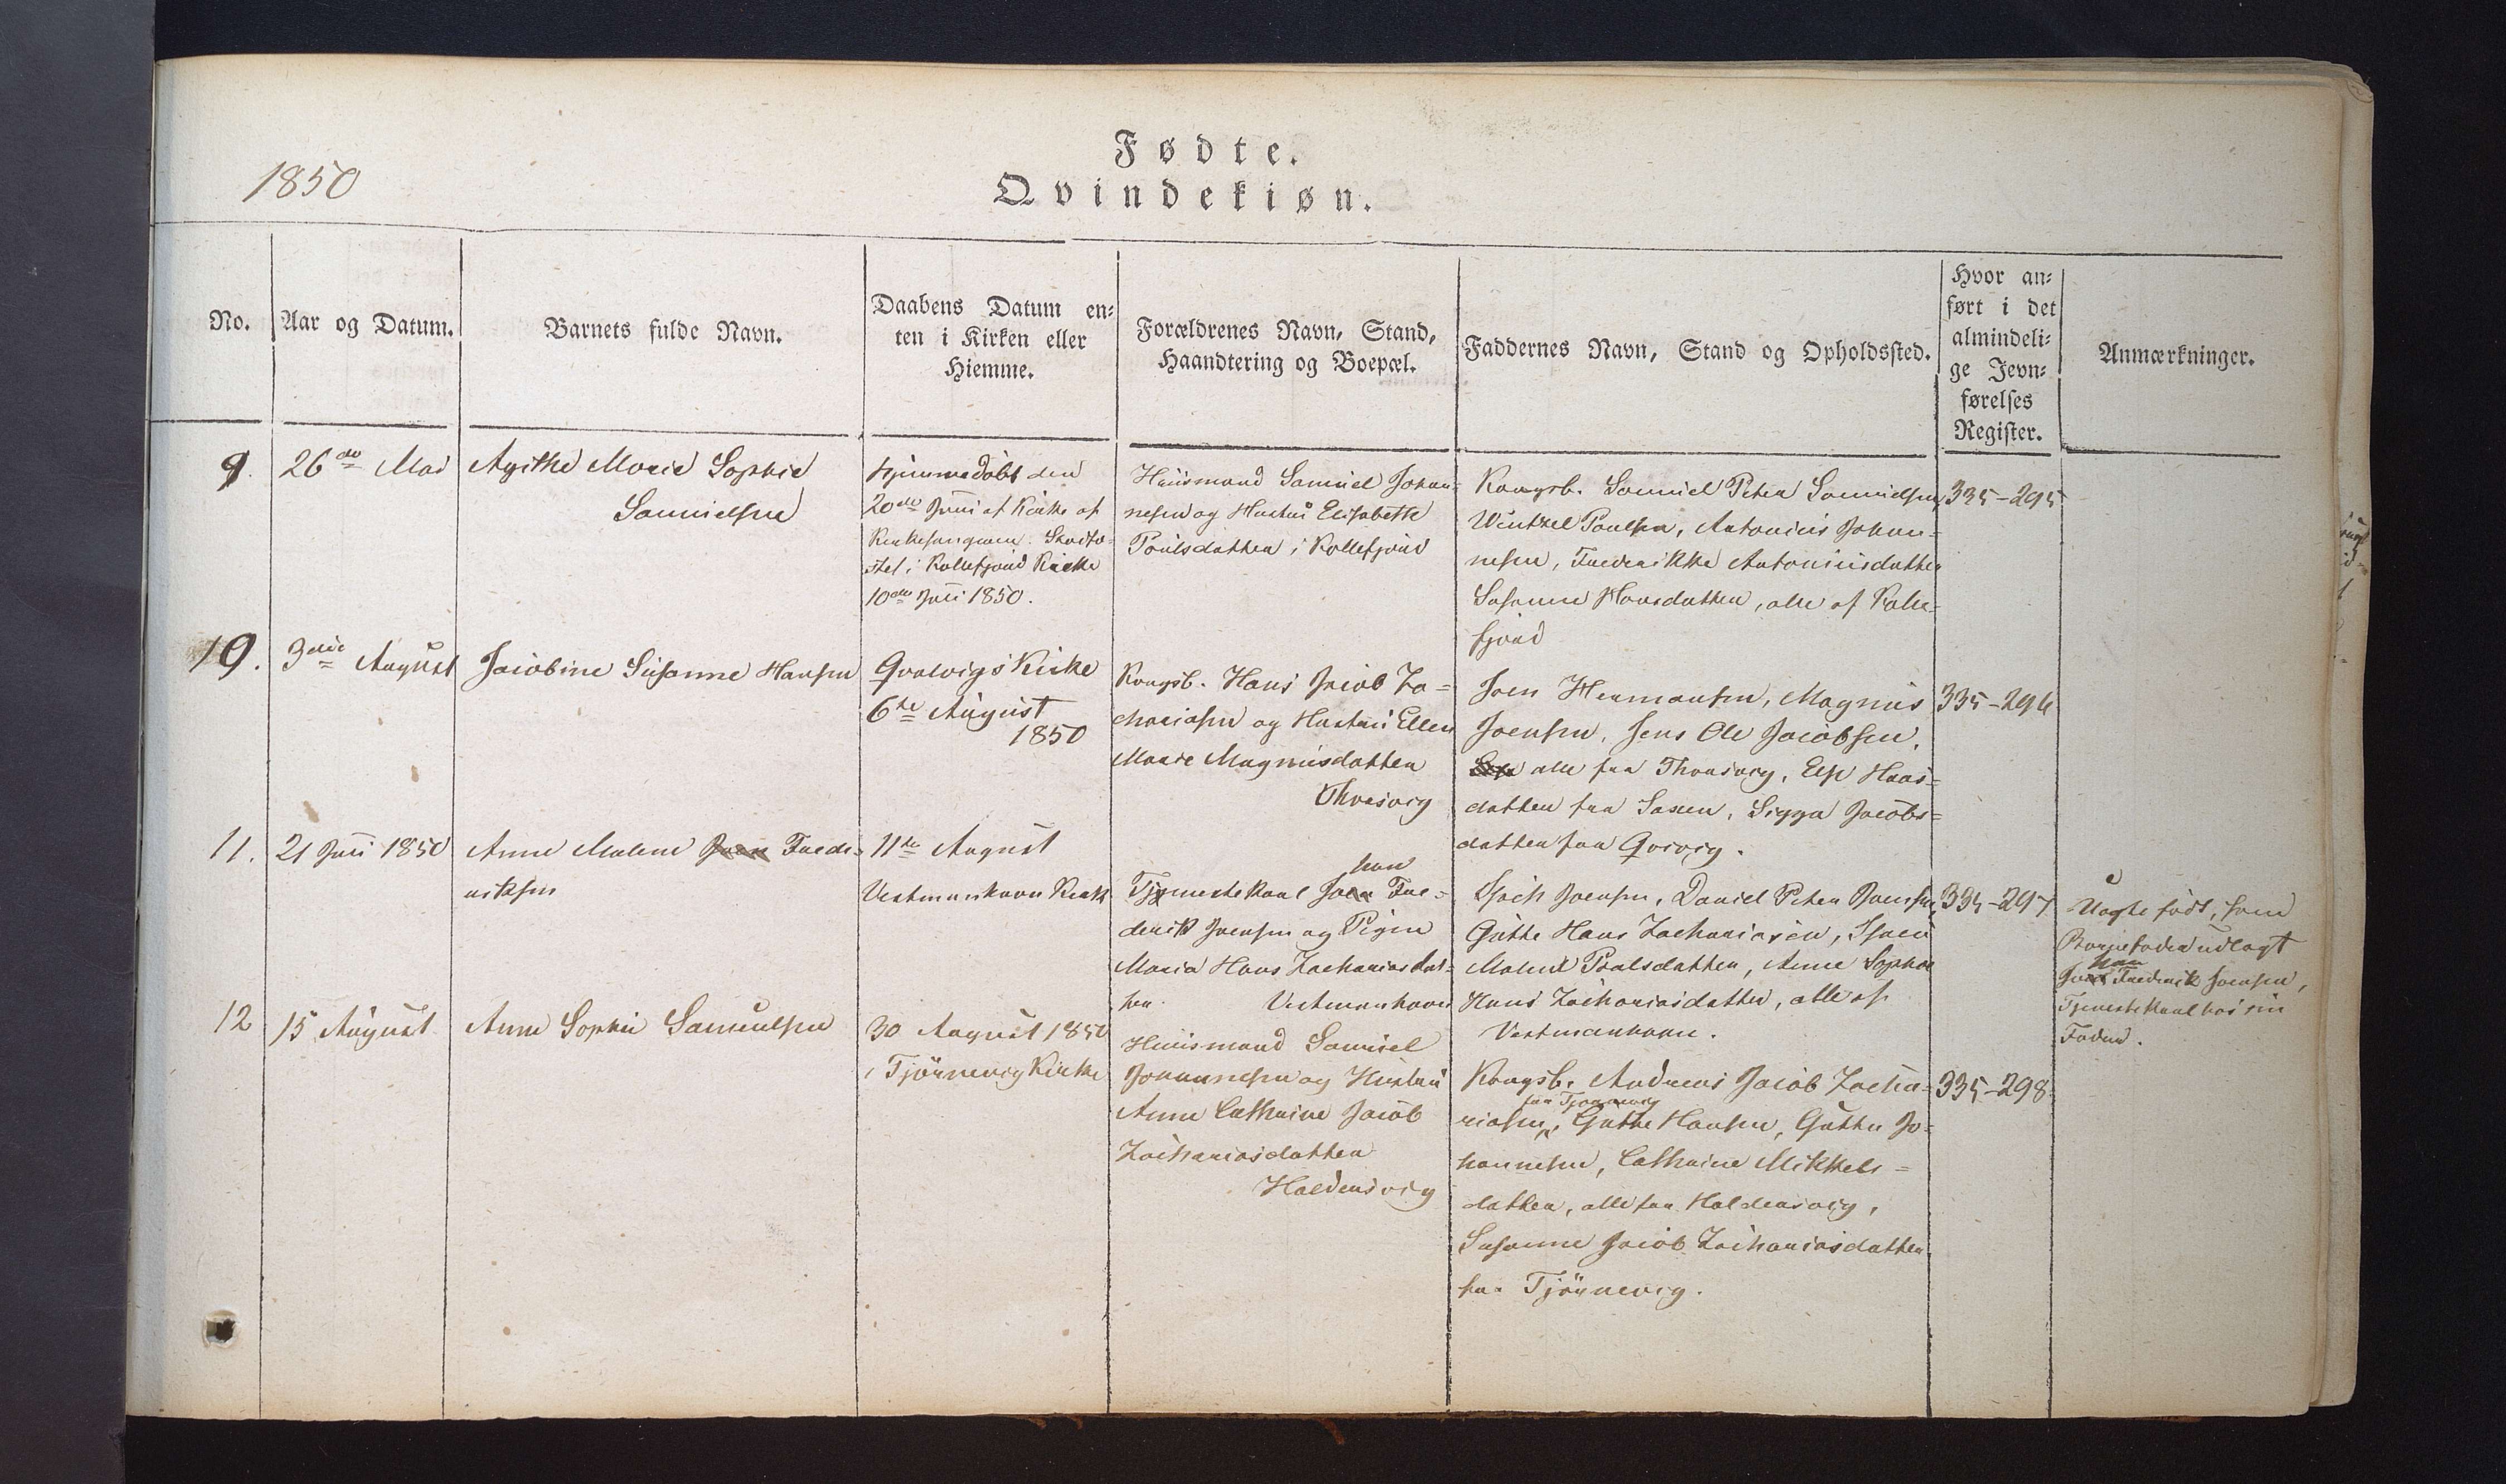 1850
Fødte.
Qvindekiøn.
No.
Aar og Datum.
Barnets fulde Navn.
Daabens Datum en-
ten i Kirken eller
Hiemme.
Forældrenes Navn, Stand,
Haandtering og Boepæl.
Faddernes Navn, Stand og Opholdssted.
Hvor an-
ført i det
almindeli-
ge Jevn-
førelses
Register.
Anmærkninger.
9.
26de Mai
Agithe Marie Sophie
Samuelsen
Hjemmedøbt den
20de Juni af
Kirkesangeren. Stadfæ-
stet i Kollefjord Kirke
10de Juli 1850.
Huusmand Samuel Johan-
nesen og Hustru Elisabeth
Poulsdatter i Kollefjord
Kongsb. Samuel Peter Samuelsen,
Wentzel Poulsen, Antonius Johan-
nesen, Frederikke Antoniusdatter
Susanne Hansdatter, alle af Kolle-
fjord
335-295
10.
3die August
Jacobine Susanne Hansen
Qvalvigs Kirke
6te August
1850
Kongsb. Hans Jacob Za-
chariasen og Hustru Ellen
Marie Magnusdatter
Thorsvig
Joen Hermansen, Magnus
Joensen, Jens Ole Jacobsen,
alle fra Thorsvig, Else Hans-
datter fra Saxen, Sigga Jacobs-
datter fra
335-296
11.
21 Juli 1850
Anne Malene Frede-
riksen
11te August
Vestmanhavn Kirke
Tjenestekarl Johan Fre-
derik Joensen og Pigen
Maria Hans Zachariasdat-
ter. Vestmanhavn
Joensen, Daniel Peter Joensen,
Gutte Hans Zachariasen,
Malene Poulsdatter, Anne Sophie
Hans Zachariasdatter, alle af
Vestmanhavn.
335-297
Uægte født, som
Barnefader udlagt
Johan Frederik Joensen,
Tjenestekarl hos sin
Fader.
12
15 August
Anne Sophie Samuelsen
30 August 1850
i Tjörnevig Kirke
Huusmand Samuel
Johannesen og Hustru
Anne Cathrine Jacob
Zachariasdatter
Haldensvig
Kongsb. Andreas Jacob Zacha-
riasen fra Tjörnevig, Gutte Hansen, Gutte Jo-
hannesen, Cathrine Mikkels-
datter, alle fra Haldensvig,
Susanne Jacob Zachariasdatter
fra Tjörnevig.
335-298